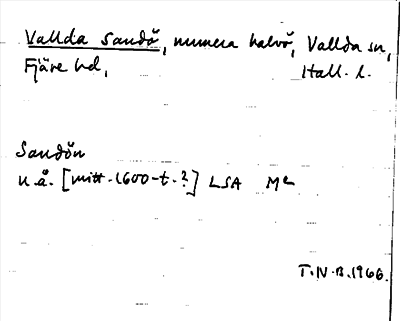 Vallda Sandö, numera halvö, Vallda sn,
Fjäre hd, Hall. l.
Sandön
u.å. [mitt. 1600-t.?] LSA M^c
T.N.B. 1966.